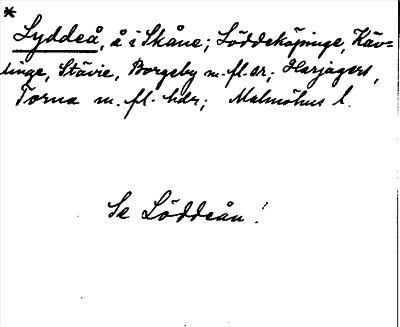 *
Lyddeå, å i Skåne; Löddeköpinge, Käv=
linge, Stävie, Borgeby m. fl. snr; Harjagers,
Torna m. fl. hdr; Malmöhus l.
Se Löddeån!